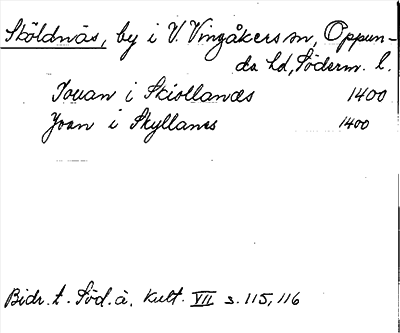 Sköldnäs, by i V. Vingåkers sn, Oppun-
da hd, Söderm. l.
Jouan i Skiollanæs 1400
Joan i Skyllanes 1400
Bidr. t. Söd. ä. kult. VII s. 115, 116